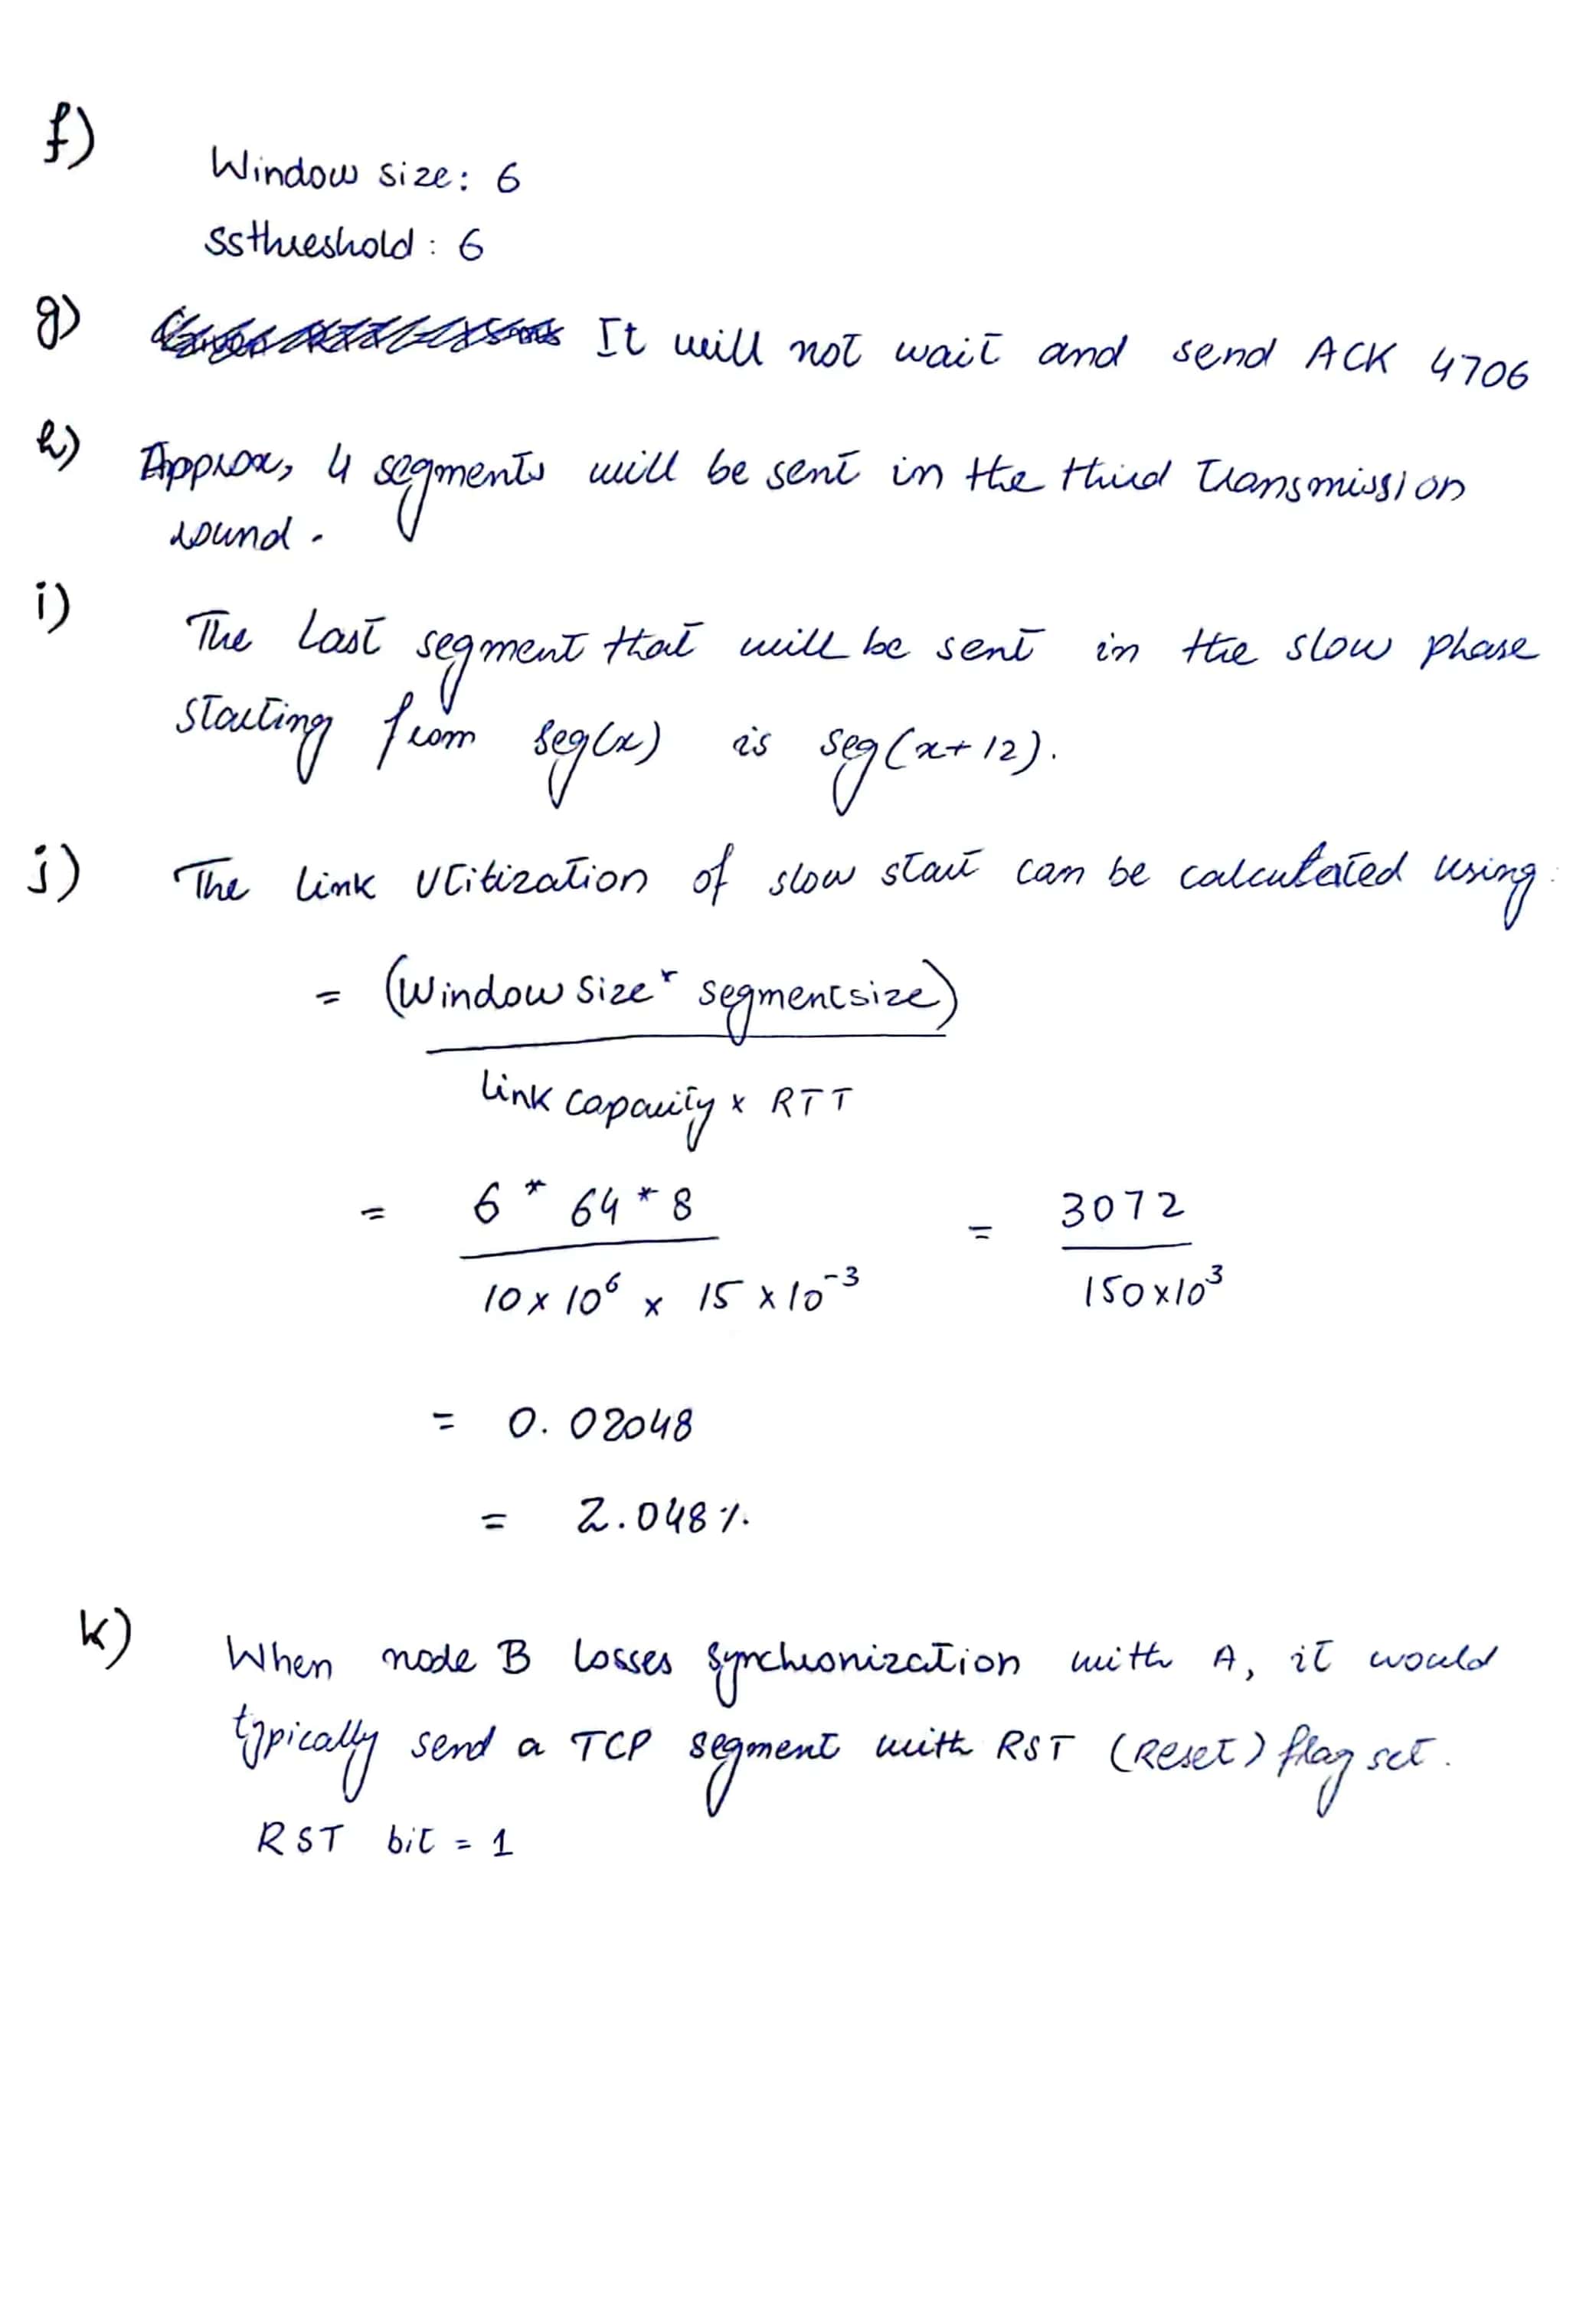 f)
Window size: 6
ssthreshold: 6
g) It will not wait and send ACK 4706
h) Approx, 4 segments will be sent in the third Transmission
round.
i)
The Last segment that will be sent in the slow phase
starting from seg(x) is seg(x+12).
j) The link Utitization of slow start can be calculated using:
= (Window Size * segmentsize)
link capacity x RTT
= 6 * 64 * 8 = 3072
10 x 10⁶ x 15 x 10⁻³ 150x10³
= 0.02048
= 2.048%.
k)
When node B losses synchronization with A, it would
typically send a TCP segment with RST (Reset) flag set.
RST bit = 1